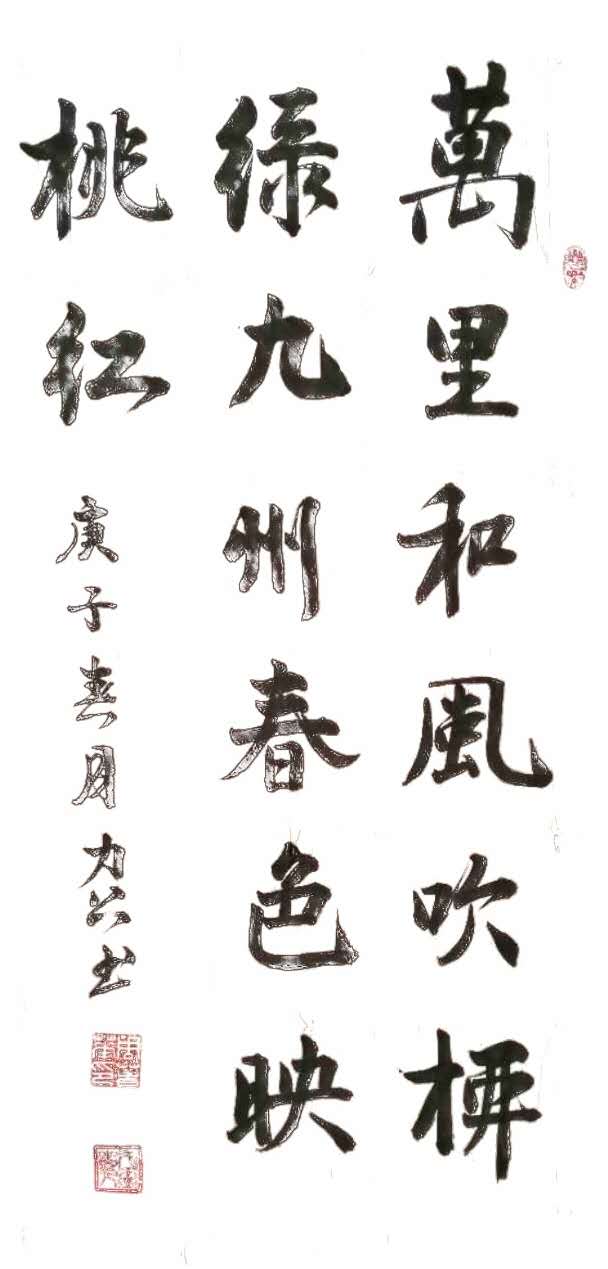 萬里和風吹柳
绿九州春色映
桃红
庚子春月力公书